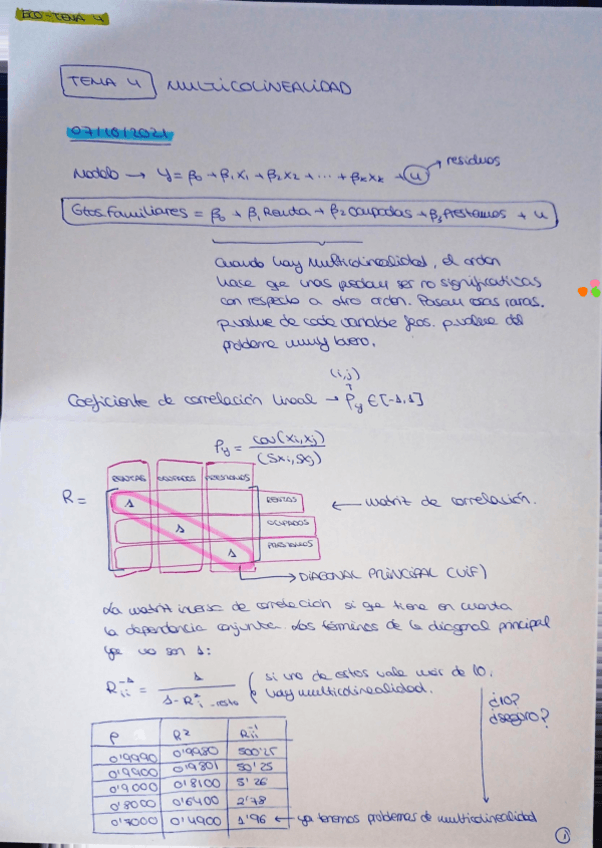 ECO-TEMA 4
TEMA 4 MULTICOLINEALIDAD
07/10/2021
Modelo → Y = β0 + β1X1 + β2X2 + ... + βkXk + u → residuos
Gtos.Familiares = β0 + β1Renta + β2Ocupados + β3Préstamos + u
Cuando hay Multicolinealidad, el orden
hace qe unas puedan ser no significativas
con respecto a otro orden. Pasan cosas raras.
p.value de cada variable feos. p.value del
problema muy bueno.
(i,j)
Coeficiente de correlación lineal → ρy ∈ [-1,1]
ρy = cov(xi,xj) / (Sxi,Sxj)
RENTAS OCUPADOS PRÉSTAMOS
R = 1 RENTAS ← matriz de correlación.
1 OCUPADOS
1 PRÉSTAMOS
→ DIAGONAL PRINCIPAL (VIF)
La matriz inversa de correlacion si qe tiene en cuenta
la dependencia conjunta. Los términos de la diagonal principal
qe no son 1:
R⁻¹ii = 1 / 1-R²i-resto ( si uno de estos vale más de 10,
hay multicolinealidad.
¿10?
¿seguro?
ρ R² R⁻¹ii
0'9990 0'9980 500'25
0'9900 0'9801 50'25
0'9000 0'8100 5'26
0'8000 0'6400 2'78
0'7000 0'4900 1'96 ← ya tenemos problemas de multicolinealidad
1